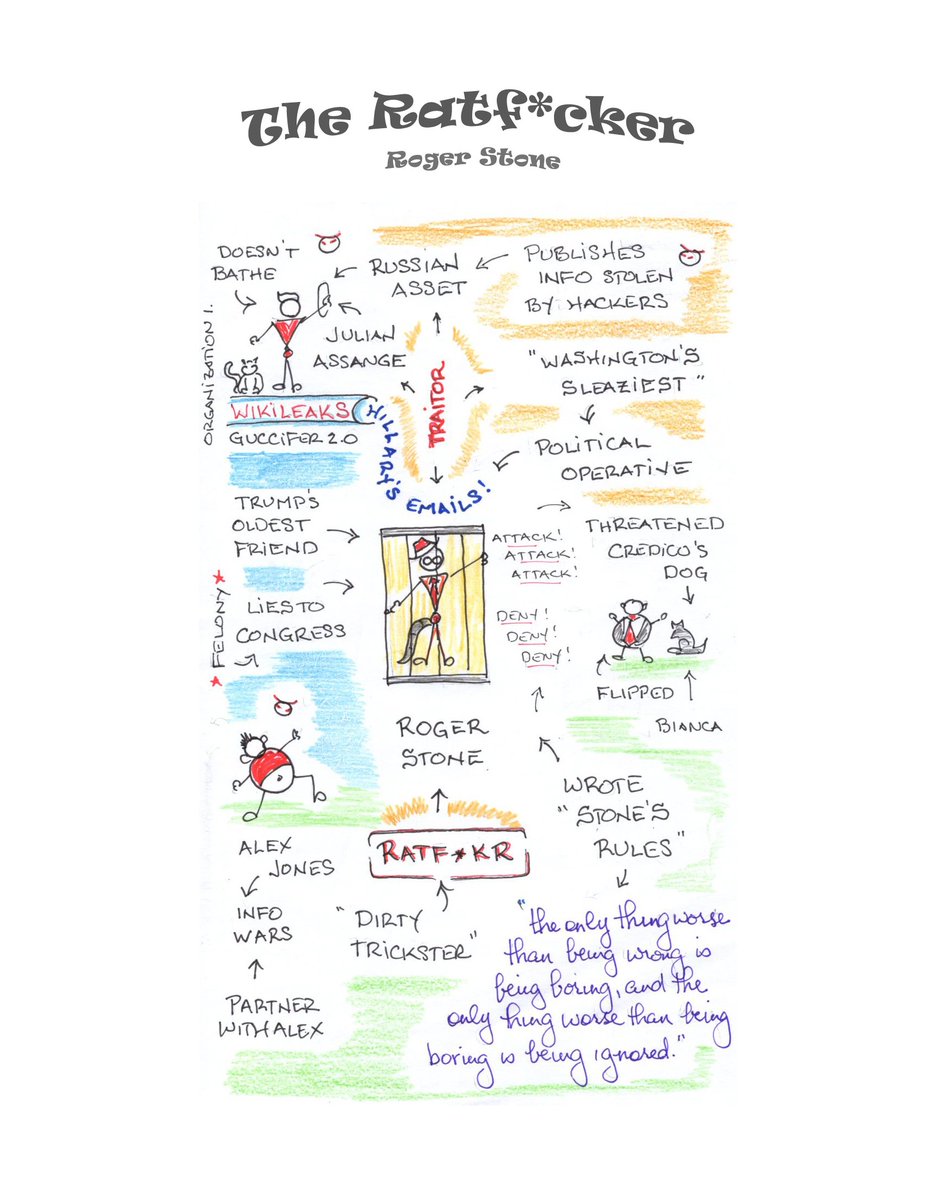 The Ratf*cker
Roger Stone
DOESN'T
BATHE
RUSSIAN
ASSET
PUBLISHES
INFO STOLEN
BY HACKERS
JULIAN
ASSANGE
ORGANIZATION 1.
WIKILEAKS
GUCCIFER 2.0
TRAITOR
HILLARY'S EMAILS!
"WASHINGTON'S
SLEAZIEST"
POLITICAL
OPERATIVE
TRUMP'S
OLDEST
FRIEND
ATTACK!
ATTACK!
ATTACK!
THREATENED
CREDICO'S
DOG
FELONY
LIES TO
CONGRESS
DENY!
DENY!
DENY!
FLIPPED
BIANCA
ROGER
STONE
WROTE
"STONE'S
RULES"
RATF*KR
ALEX
JONES
INFO
WARS
PARTNER
WITH ALEX
"DIRTY
TRICKSTER"
"the only thing worse
than being wrong is
being boring, and the
only thing worse than being
boring is being ignored."